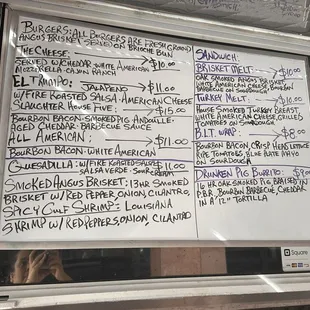 BURGERS: (ALL BURGERS ARE FRESH GROUND
ANGUS BRISKET SERVED ON BRIOCHE BUN
THE CHEESE: $10.00
SERVED W/CHEDDAR-WHITE AMERICAN
MOZZARELLA-CAJUN RANCH
EL TRAMPO: JALAPENO $11.00
W/FIRE ROASTED SALSA-AMERICAN CHEESE
SLAUGHTER HOUSE FIVE: $15.00
BOURBON BACON-SMOKED PIG-ANDOUILLE-
AGED CHEDDAR-BARBECUE SAUCE
ALL AMERICAN: $11.00
BOURBON BACON-WHITE AMERICAN
QUESADILLA: W/FIRE ROASTED SALSA $11.00
SALSA VERDE-SOUR CREAM
SMOKED ANGUS BRISKET: 13HR SMOKED
BRISKET W/RED PEPPER, ONION, CILANTRO,
SPICY GULF SHRIMP: LOUISIANA
SHRIMP W/RED PEPPERS, ONION, CILANTRO
SANDWICH:
BRISKET MELT: $10.00
OAK SMOKED ANGUS BRISKET
WHITE AMERICAN CHEESE
BARBECUE ON SOURDOUGH
TURKEY MELT: $10.00
HOUSE SMOKED TURKEY BREAST
WHITE AMERICAN CHEESE, GRILLED
TOMATOES ON SOURDOUGH
B.L.T. WRAP: $8.00
BOURBON BACON, CRISP HEAD LETTUCE
RIPE TOMATOES, BLUE
ON SOURDOUGH
DRUNKEN PIG BURRITO: $9.00
16 HR OAK SMOKED PIG BRAISED IN
P.B.R. BOURBON BARBECUE, CHEDDAR
IN A 12" TORTILLA
Square